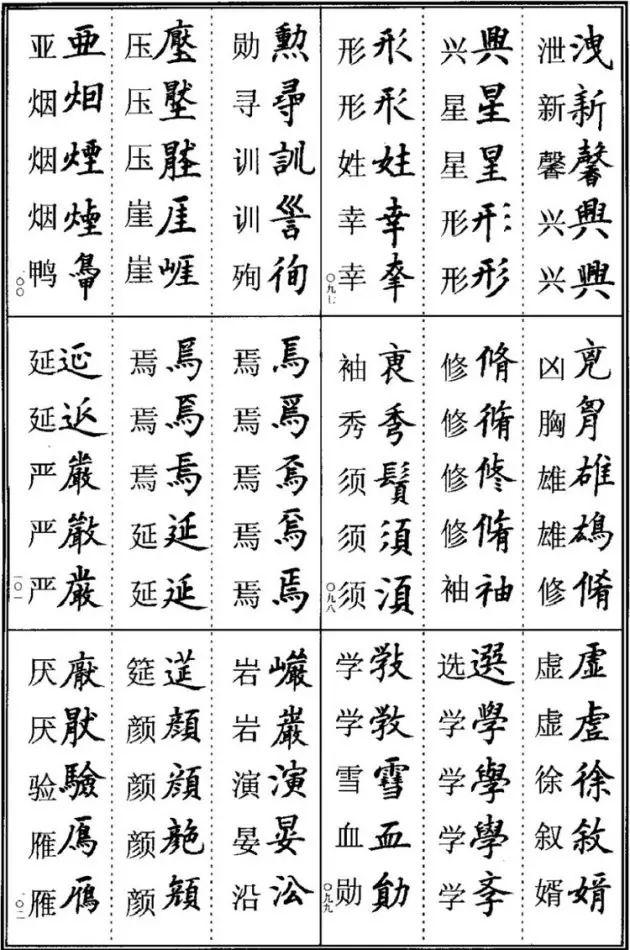 泄洩
新新
馨馨
兴興
兴興
兴興
星星
星星
形形
形形
形形
形形
姓姓
幸幸
幸
〇九七
凶兇
胸胷
雄雄
雄鴆
修脩
修脩
修脩
修修
修脩
袖袖
袖褎
秀秀
须鬚
须須
须湏
〇九八
虚虛
虚虗
徐徐
叙敘
婿婿
选選
学學
学學
学學
学斈
学斆
学教
雪雪
血血
勋勛
〇九九
勋勲
寻尋
训訓
训
殉徇
压壓
压
压
崖厓
崖崕
亚亜
烟烟
烟煙
烟煙
鸭
一〇〇
焉焉
焉焉
焉焉
焉焉
焉焉
焉焉
焉焉
焉焉
延延
延延
延延
延
严巌
严嚴
严巌
一〇一
岩巗
岩巖
演演
晏晏
沿㳂
筵莚
颜顔
颜顔
颜
颜
厌厭
厌猒
验驗
雁鴈
雁鴈
一〇二